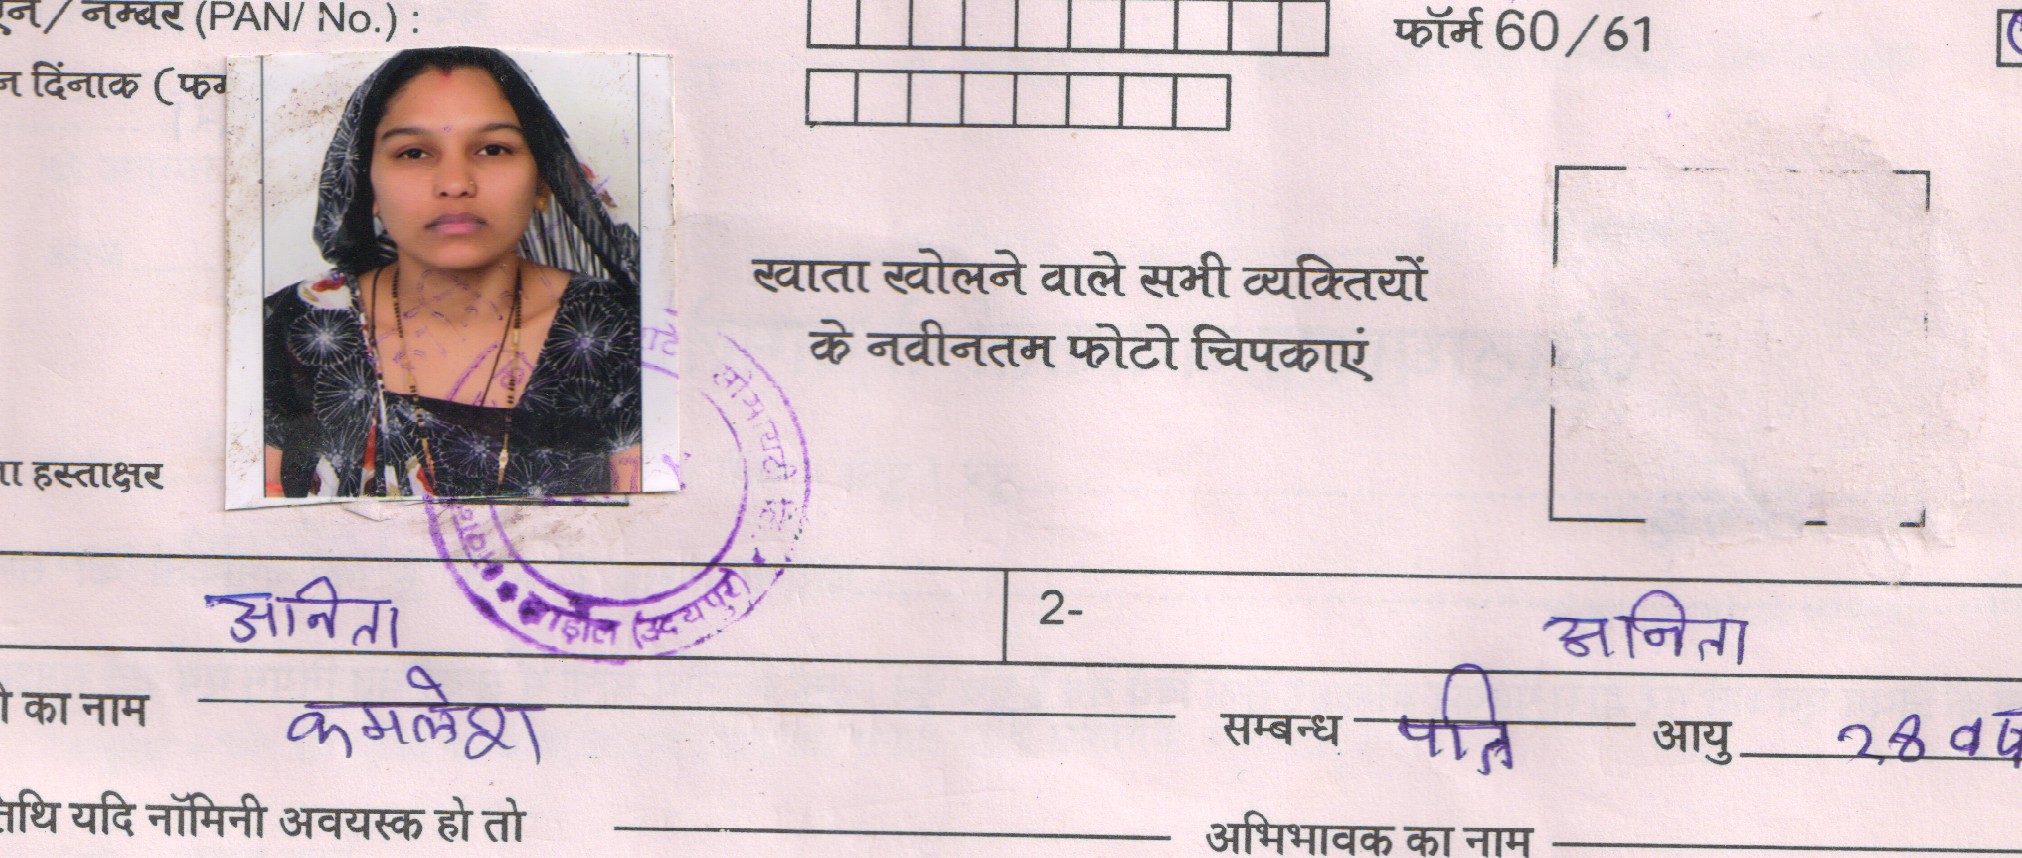 नम्बर (PAN/ No.) :
फॉर्म 60/61
दिंनाक (
खाता खोलने वाले सभी व्यक्तियों
के नवीनतम फोटो चिपकाएं
हस्ताक्षर
सोसायटी
झाड़ोल (उदयपुर)
अनिता 2- अनिता
का नाम कमलेश सम्बन्ध पति आयु 28 वर्ष
यदि नॉमिनी अवयस्क हो तो अभिभावक का नाम